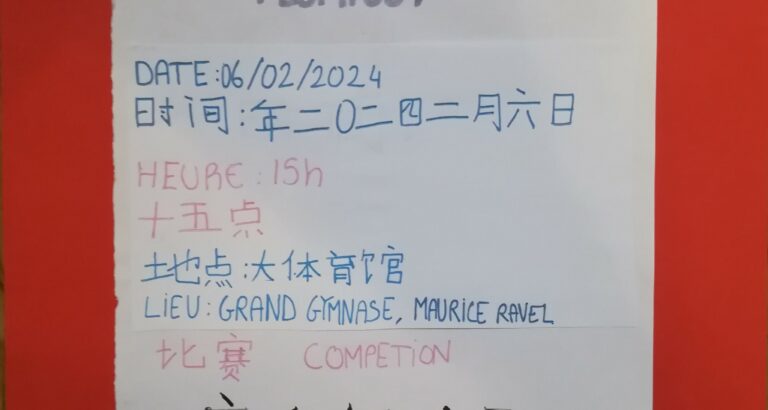 DATE:06/02/2024
时间:年二〇二四二月六日
HEURE: 15h
十五点
地点:大体育馆
LIEU: GRAND GYMNASE, MAURICE RAVEL
比赛 COMPETION